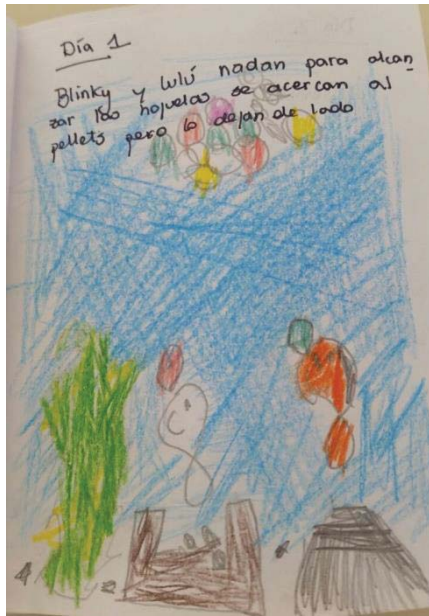 Día 1
Blinky y Lulú nadan para alcan
zar las hojuelas se acercan al
pellets pero lo dejan de lado